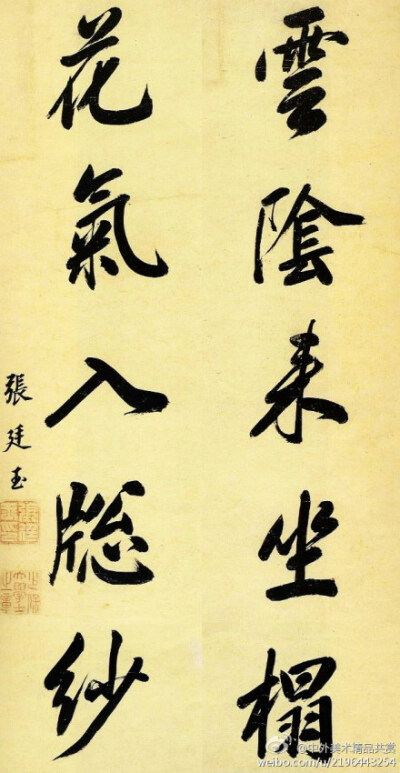 雲陰来坐榻
花氣入牎紗
張廷玉
@中外美术精品共赏
weibo.com/u/2196443254